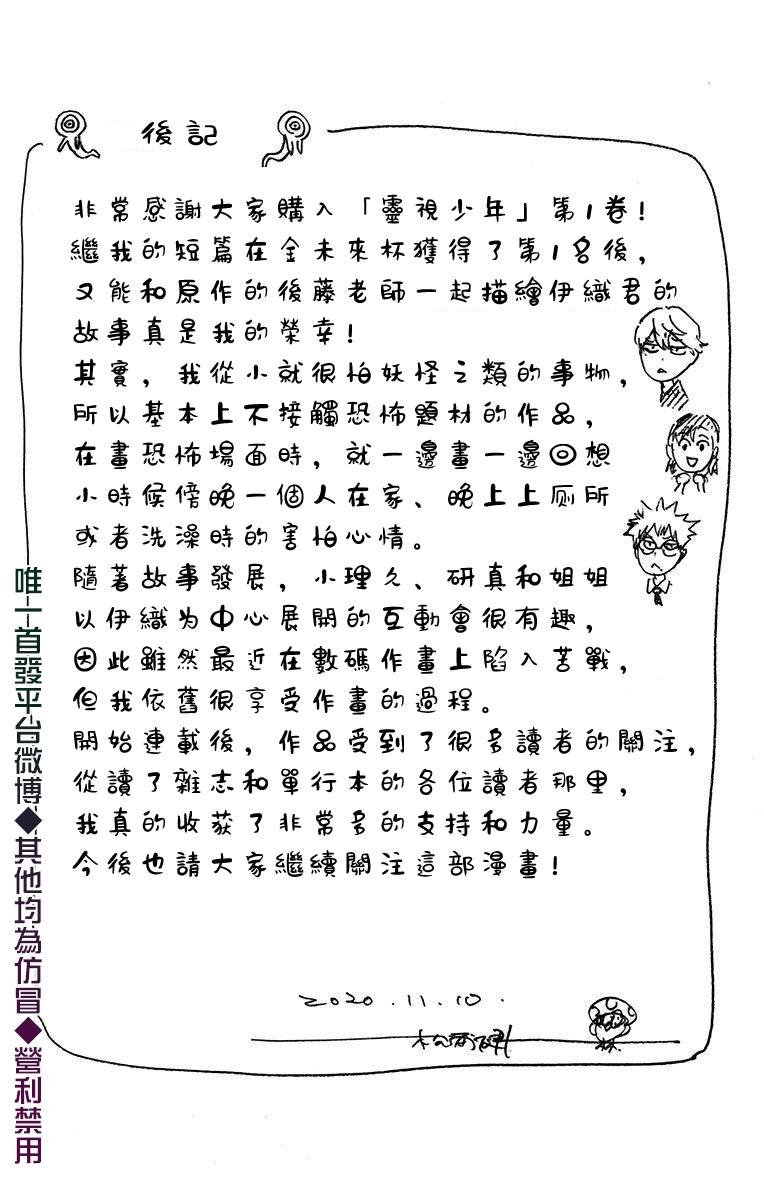 後記
非常感謝大家購入「靈視少年」第1卷!
繼我的短篇在全未來杯獲得了第1名後,
又能和原作的後藤老師一起描繪伊織君的
故事真是我的榮幸!
其實,我從小就很怕妖怪之類的事物,
所以基本上不接觸恐怖題材的作品,
在畫恐怖場面時,就一邊畫一邊回想
小時候傍晚一個人在家、晚上上厕所
或者洗澡時的害怕心情。
隨著故事發展,小理久、研真和姐姐
以伊織為中心展開的互動會很有趣,
因此雖然最近在數碼作畫上陷入苦戰,
但我依舊很享受作畫的過程。
開始連載後,作品受到了很多讀者的關注,
從讀了雜志和單行本的各位讀者那里,
我真的收获了非常多的支持和力量。
今後也請大家繼續關注這部漫畫!
2020.11.10.
唯一首發平台微博◆其他均為仿冒◆營利禁用